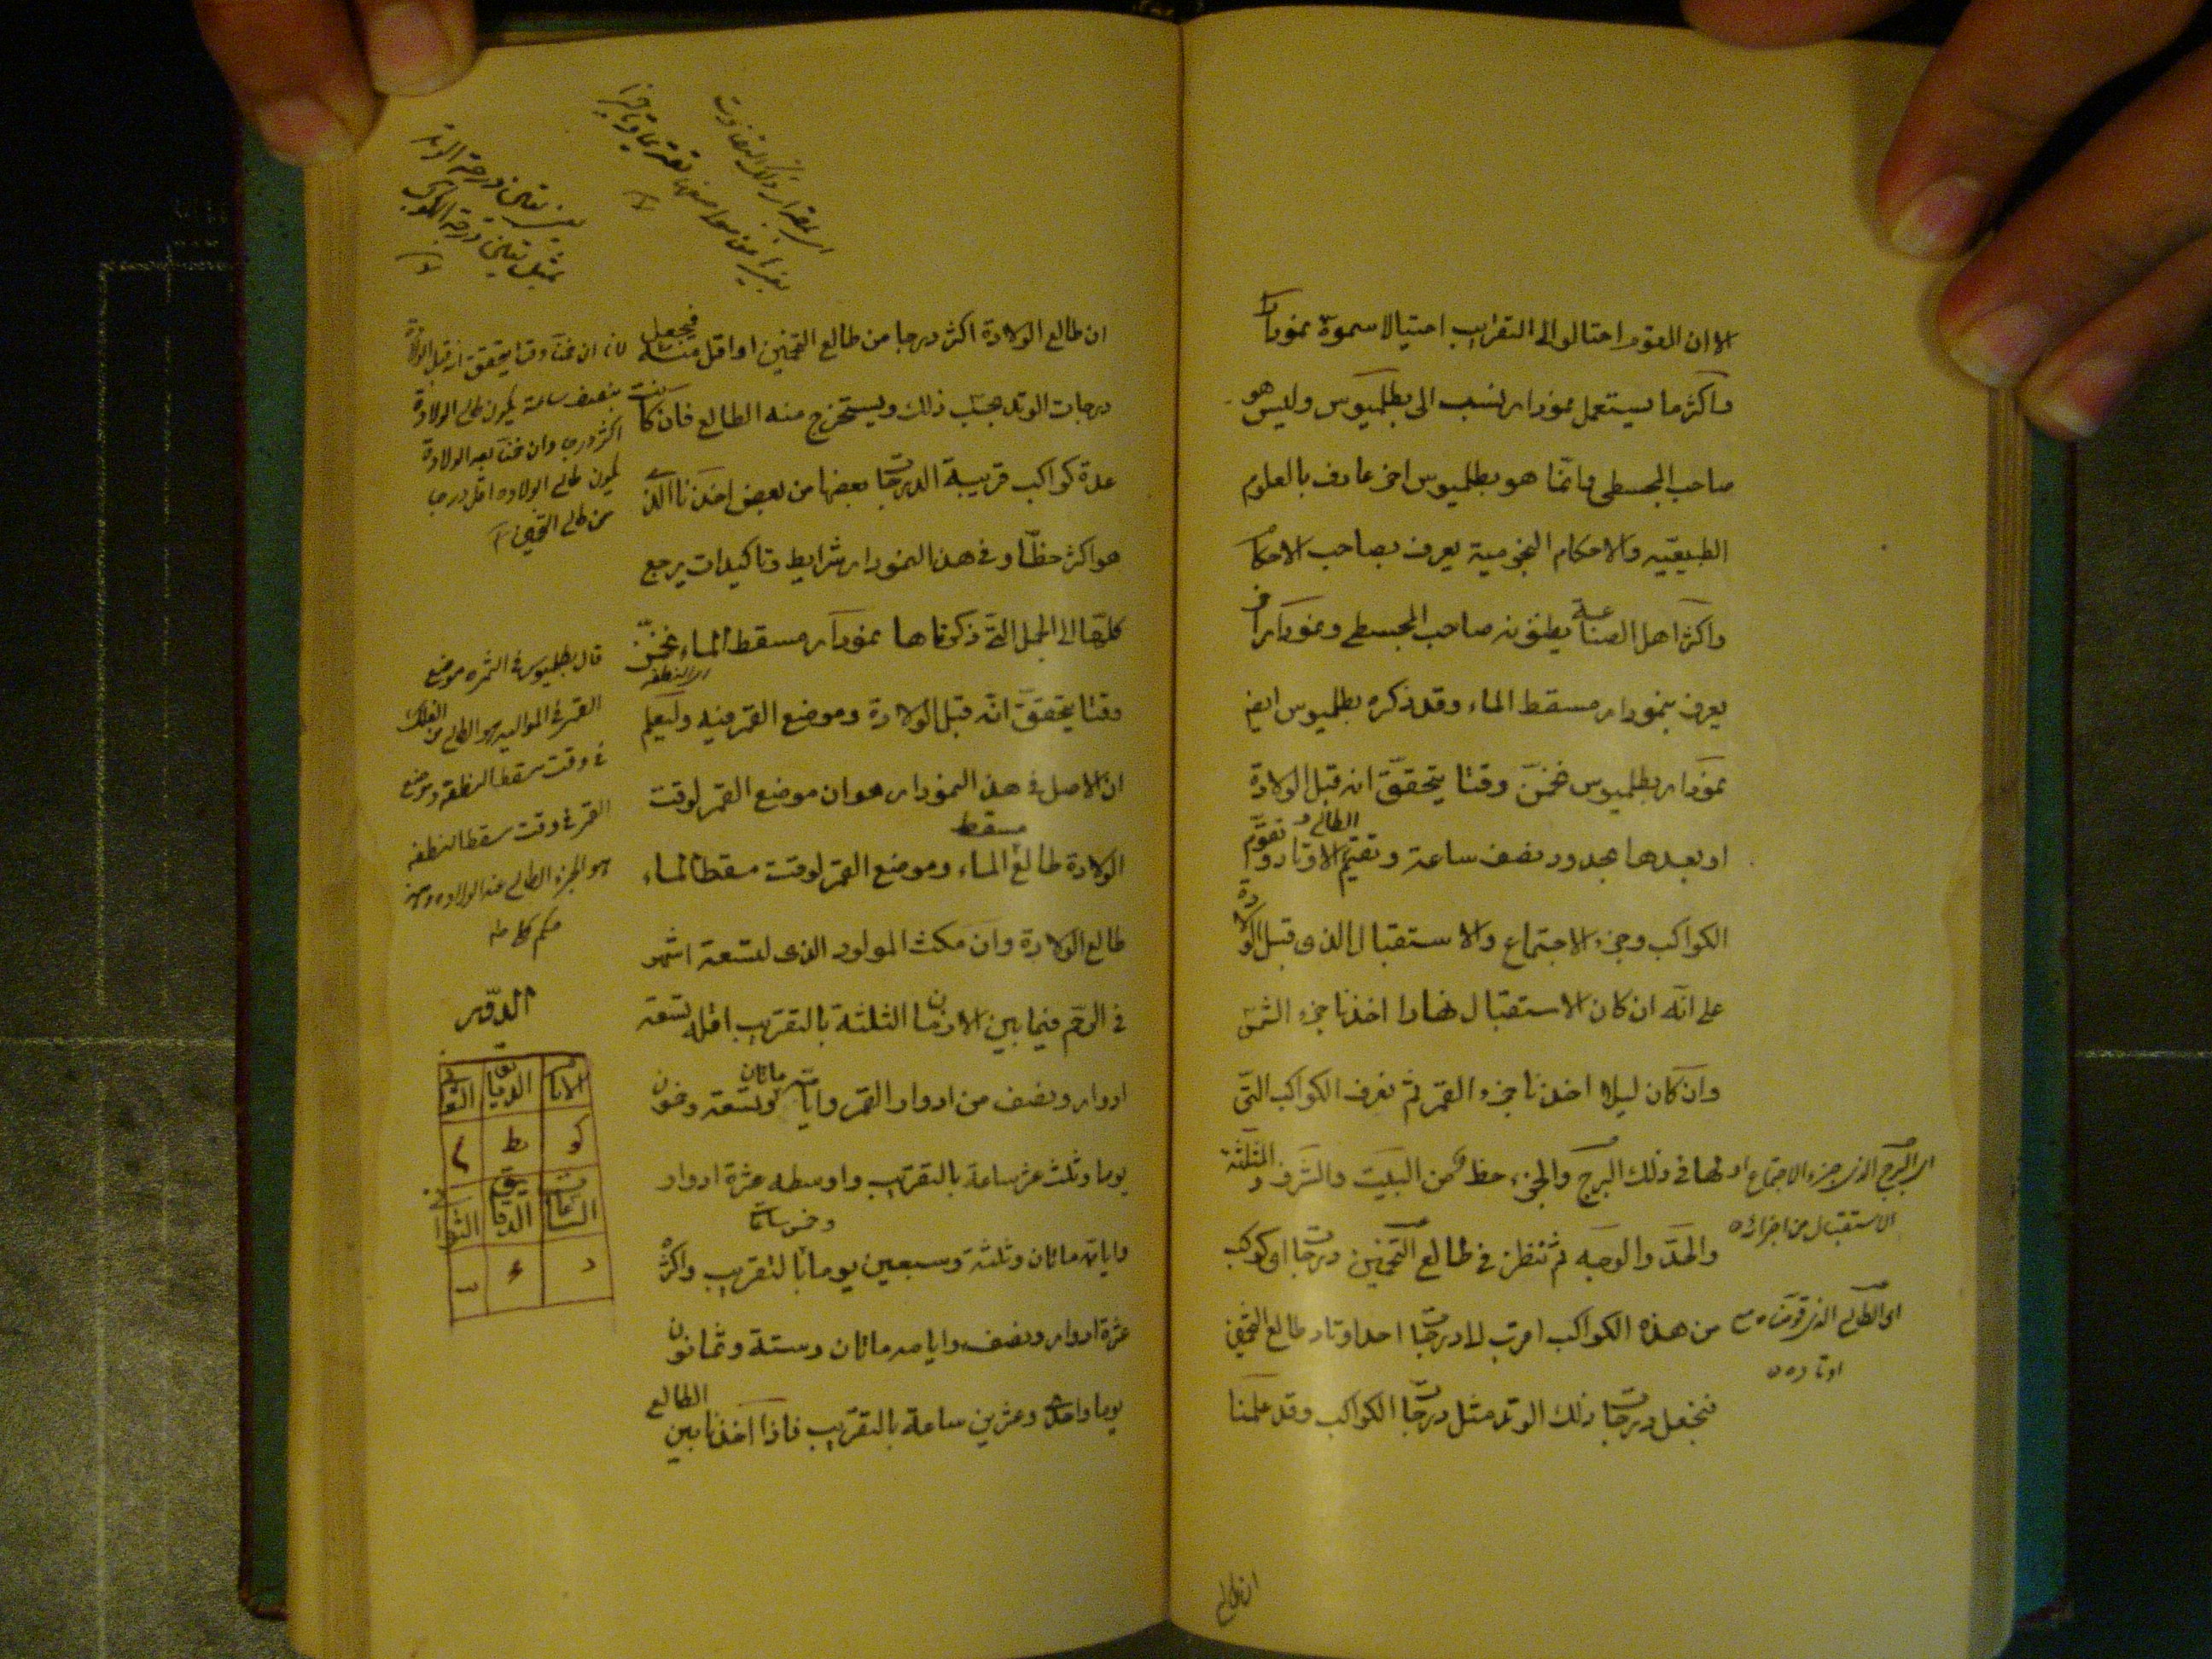 الا ان القوم احتالوا الى التقريب احتيالا سموه نمودارا
واكثر ما يستعمل نمودار نسب الى بطلميوس وليس هو
صاحب المجسطى وانما هو بطلميوس اخر عارف بالعلوم
الطبيعيه والاحكام النجومية يعرف بصاحب الاحكام
واكثر اهل الصناعة يظنونه صاحب المجسطى ونمودار اخر
يعرف بنمودار مسقط الماء وقد ذكره بطلميوس ايضا
نمودار بطلميوس نخمن وقتا يتحقق انه قبل الولادة
او بعدها بحدود نصف ساعة ونقيم الطالع والاوتاد ونقوم
الكواكب وجزء الاجتماع والاستقبال الذى قبل الولادة
على انه ان كان الاستقبال نهارا اخذنا جزء الشمس
وان كان ليلا اخذنا جزء القمر ثم نعرف الكواكب التى
لها فى ذلك البرج والجزء حظ من البيت والشرف والمثلثة
اى البرج الذى جزء الاجتماع او
الاستقبال من اجزائه
والحد والوجه ثم ننظر فى طالع التخمين درجات اى كوكب
من هذه الكواكب اقرب لا درجات احد اوتاد طالع التخمين
اى الطالع الذى قومناه مع
اوتاده
فنجعل درجات ذلك الوتد مثل درجات الكواكب وقد علمنا
ان طالع
ان طالع الولادة اكثر درجا من طالع التخمين او اقل منه فنجعل
درجات الوتد بحسب ذلك ويستخرج منه الطالع فان كانت
عدة كواكب قريبة الدرجات بعضها من بعض اخذنا الذى
هو اكثر حظا وفى هذا النمودار شرايط وتاكيدات يرجع
كلها الى الجمل التى ذكرناها نمودار مسقط الماء نخمن
اى النطفه
وقتا يتحقق انه قبل الولادة وموضع القمر فيه وليعلم
ان الاصل فى هذا النمودار هو ان موضع القمر لوقت
الولادة طالع مسقط الماء وموضع القمر لوقت مسقط الماء
طالع الولادة وان مكث المولود الذى لتسعة اشهر
فى الرحم فيما بين الازمان الثلثة بالتقريب اقله تسعة
ادوار ونصف من ادوار القمر وايامه مائتان وتسعة وخمسون
يوما وثلث عشر ساعة بالتقريب واوسطه عشرة ادوار
وايامه مائتان وثلثة وسبعين يوما وخمس ساعات بالتقريب واكثره
عشرة ادوار ونصف وايامه مائتان وستة وثمانون
يوما واحدى وعشرين ساعة بالتقريب فاذا اخذنا بين الطالع
لانا ان خمنا وقتا يتحقق انه قبل الولادة
بنصف ساعة يكون طالع الولادة
اكثر درجا وان خمنا بعد الولادة
يكون طالع الولاده اقل درجا
من طالع التخمين
قال بطلميوس فى الثمره موضع
القمر فى المواليد هو الطالع من الفلك
فى وقت سقط النطفه وموضع
القمر فى وقت سقط النطفه
هو الجزء الطالع عند الولاده
الدور
الايام الدقايق الثوانى
الساعات الدقايق الثوانى